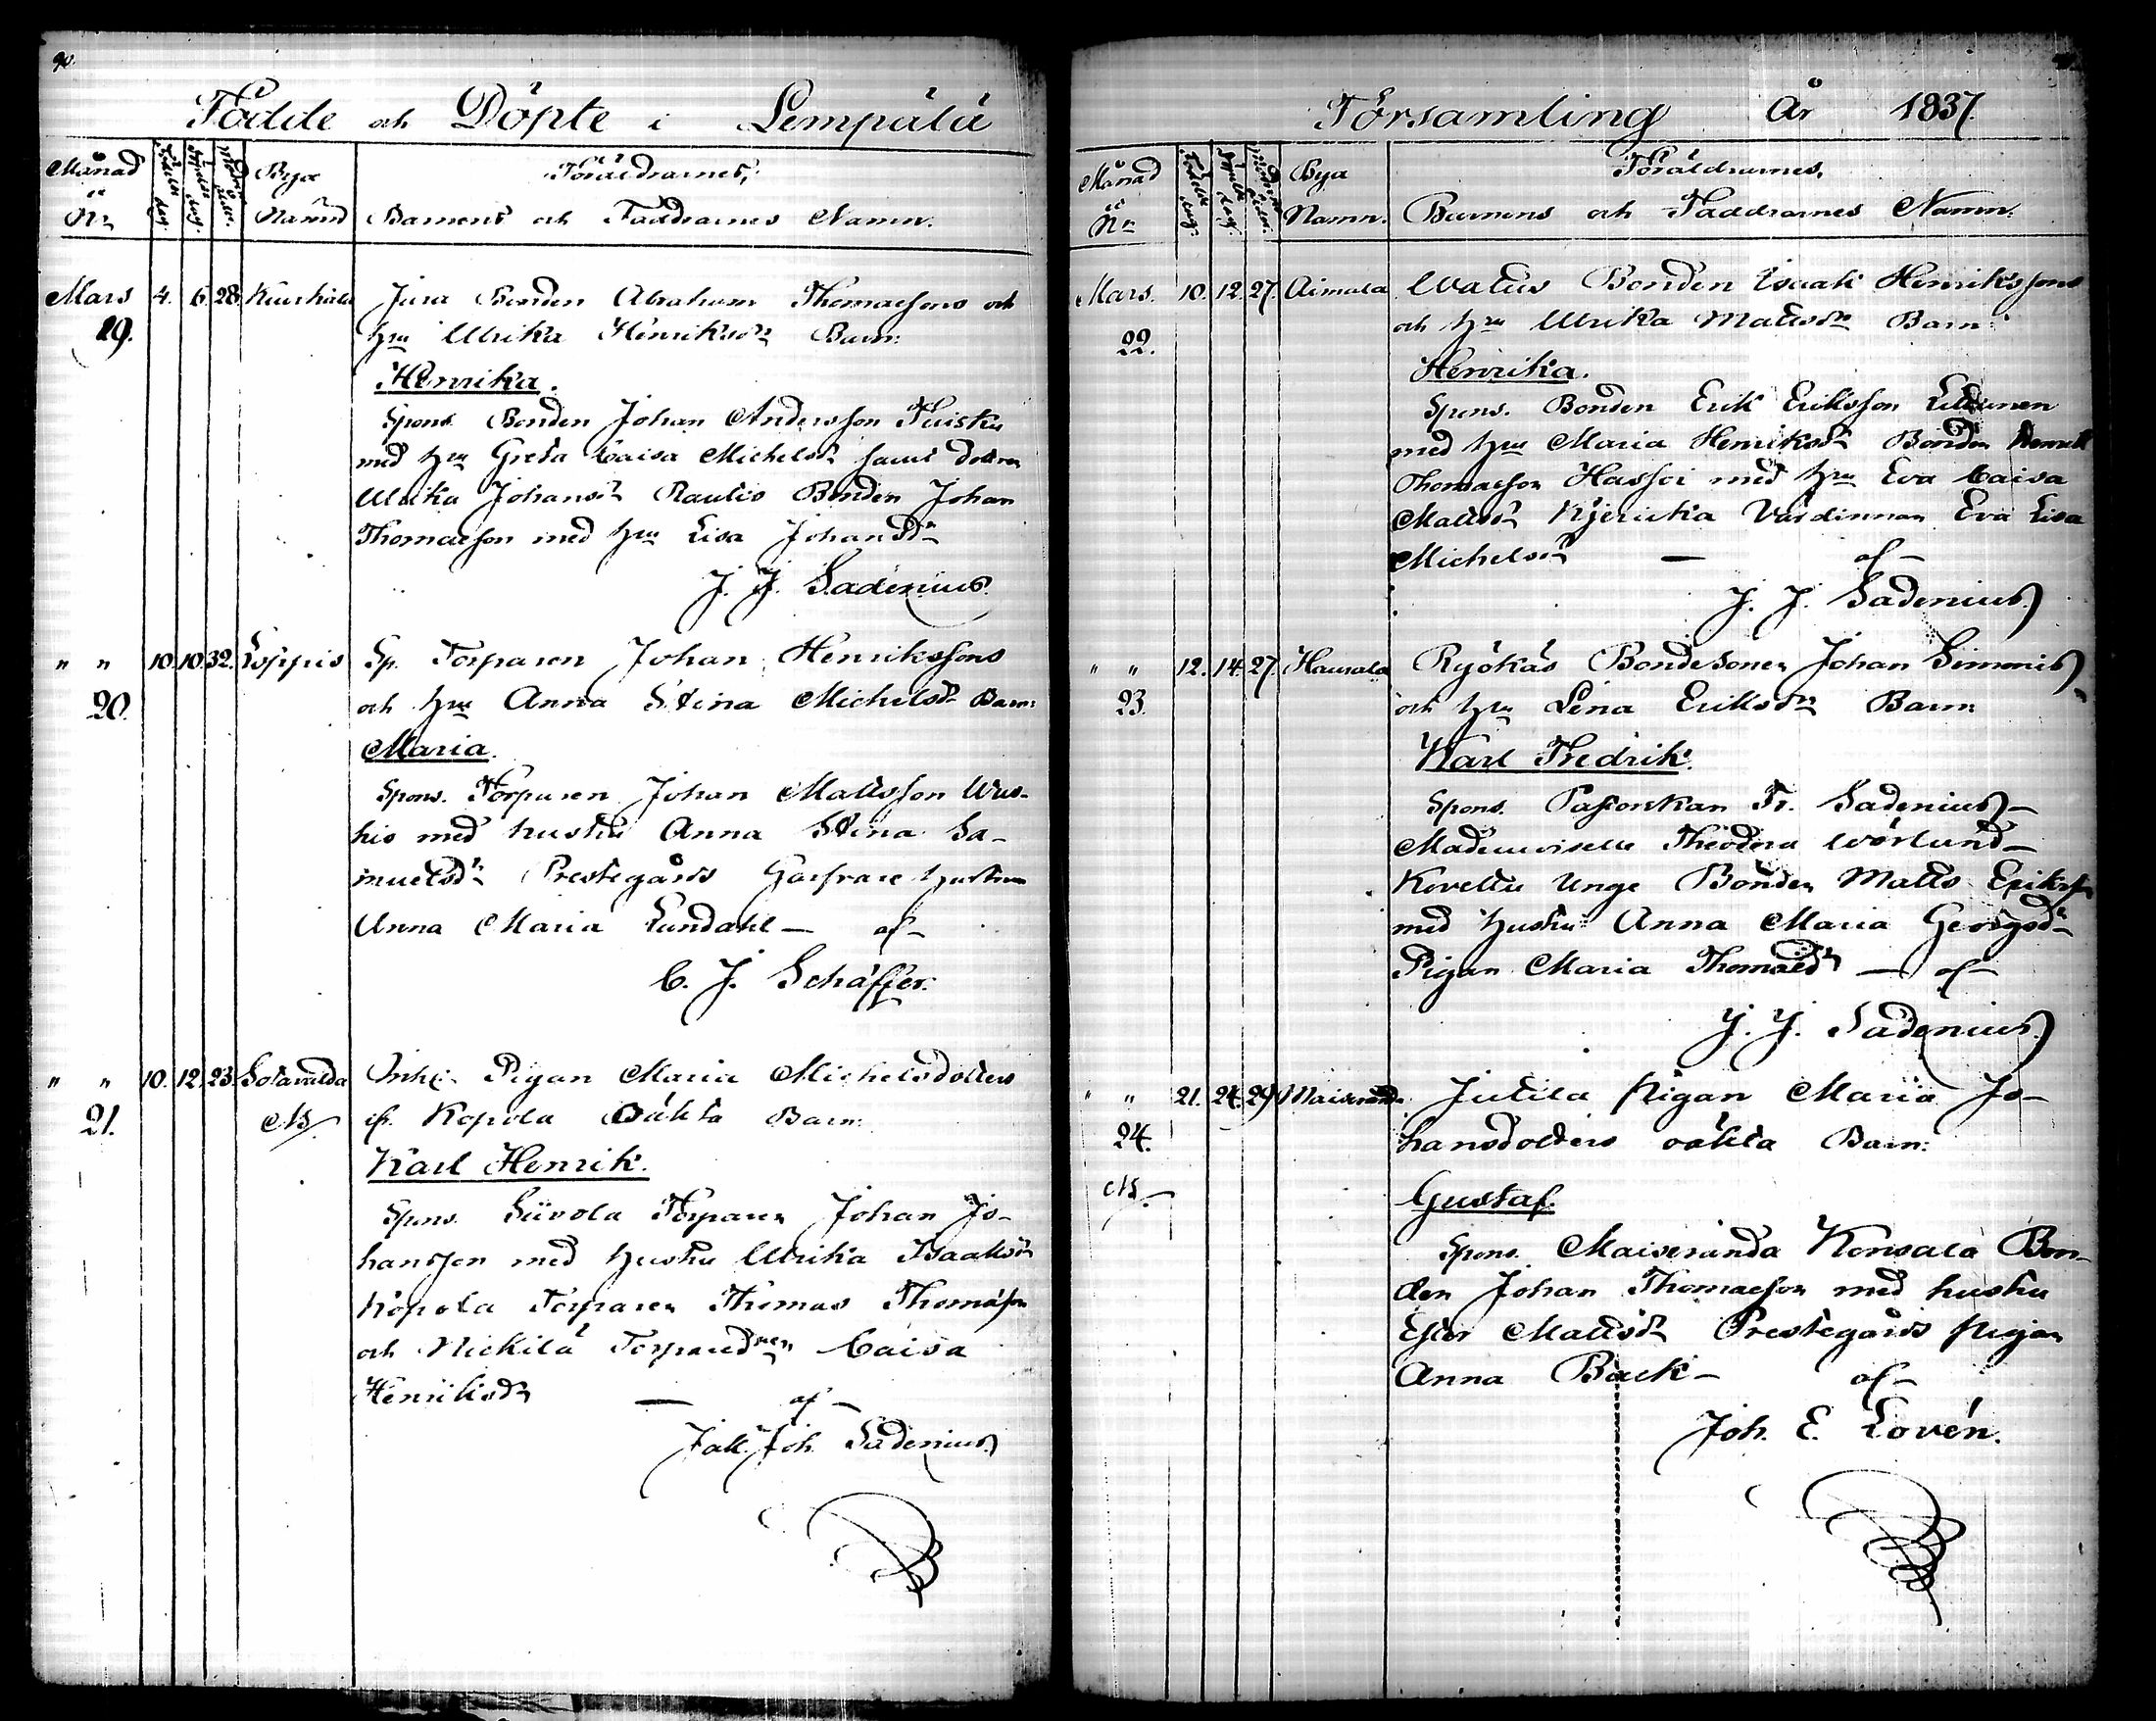 90.
Födde och Döpte i Lempälä
Månad
Födelse dag.
Bya
Föräldrarnes,
Nr
Namn
Barnens och Faddrarnes Namn.
Mars 4. 6. 28.
19.
Bonden Abraham Thomaesons och
hu Ulrika Henriksdr Barn:
Henrika.
Spons. Bonden Johan Andersson
med hu Greta Caisa Michelsdr samt dottren
Ulrika Johansdr Rautio Bonden Johan
Thomaeson med hu Lisa Johansdr
J. J. Sadenius.
" " 10. 10. 32. Loppis Sp. Torparen Johan Henrikssons
20.
och hu Anna Stina Michelsdr Barn:
Maria.
Spons. Torparen Johan Mattsson Wus-
hio med hustru Anna Stina Sa-
muelsdr Prestegårds hustru
Anna Maria Lundahl — af —
C. J. Schäffer.
" " 10. 12. 23. Sotavalda Pigan Maria Michelsdotters
21.
Kopola Oäkta Barn:
Karl Henrik.
Spons. Siivola Torparen Johan Jo-
hansson med hustru Ulrika Isaaksdr
Kopola Torparen Thomas Thomason
och Nickilä Caisa
Henriksdr — af —
Jak. Joh. Sadenius
Församling År 1837.
Månad
Födelse dag.
Bya
Föräldrarnes,
Nr
Namn.
Barnens och Faddrarnes Namn.
Mars. 10. 12. 27. Aimala Bonden Isaak Henrikssons
22.
och hu Ulrika Mattsdr Barn:
Henrika.
Spons. Bonden Erik Eriksson
med hu Maria Henriksdr Bonden Henrik
Thomaeson Hassoi med hu Eva Caisa
Mattsdr Värdinnan Eva Lisa
Michelsdr — af —
J. J. Sadenius
" " 12. 14. 27. Hausala Ryökäs Bondesonen Johan Simonis
23.
och hu Lena Eriksdr Barn
Karl Fredrik.
Spons. Pastorskan Fr. Sadenius —
Mademoiselle Theodora
Unge Bonden Matts Eriksson
med hustru Anna Maria Georgsdr —
Pigan Maria Thomaedr — af —
J. J. Sadenius
" " 21. 24. 29. Maiseranda Jutila pigan Maria Jo-
24.
hansdotters oäkta Barn:
Gustaf.
Spons. Maiseranda Konsala Bon-
den Johan Thomaeson med hustru
Ester Mattsdr Prestegårds pigan
Anna Back — af —
Joh. E. Lovén.